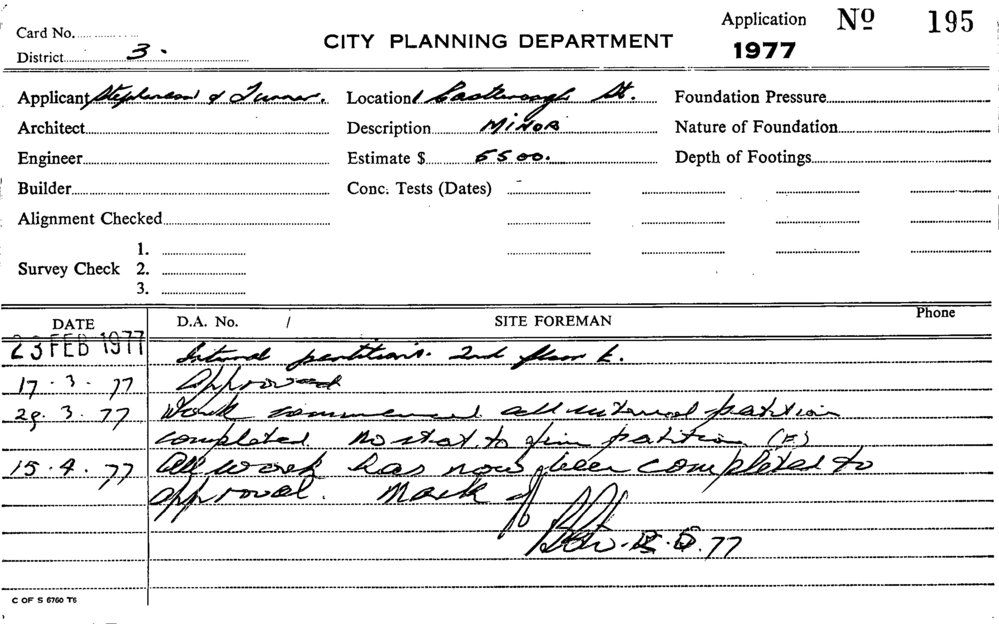 Card No.
District 3.
CITY PLANNING DEPARTMENT
Application Nº 195
1977
Applicant Stephenson & Turner. Location 1 Castlereagh St. Foundation Pressure
Architect Description MINOR Nature of Foundation
Engineer Estimate $ 5500. Depth of Footings
Builder Conc. Tests (Dates)
Alignment Checked
1.
Survey Check 2.
3.
DATE D.A. No. / SITE FOREMAN Phone
23 FEB 1977 Internal partitions. 2nd floor E.
17.3.77 Approved
29.3.77 Work commenced all internal patition
completed no stat to firm patition (E)
15.4.77 All work has now been completed to
approval. Mark of
.77
C OF S 6760 T6